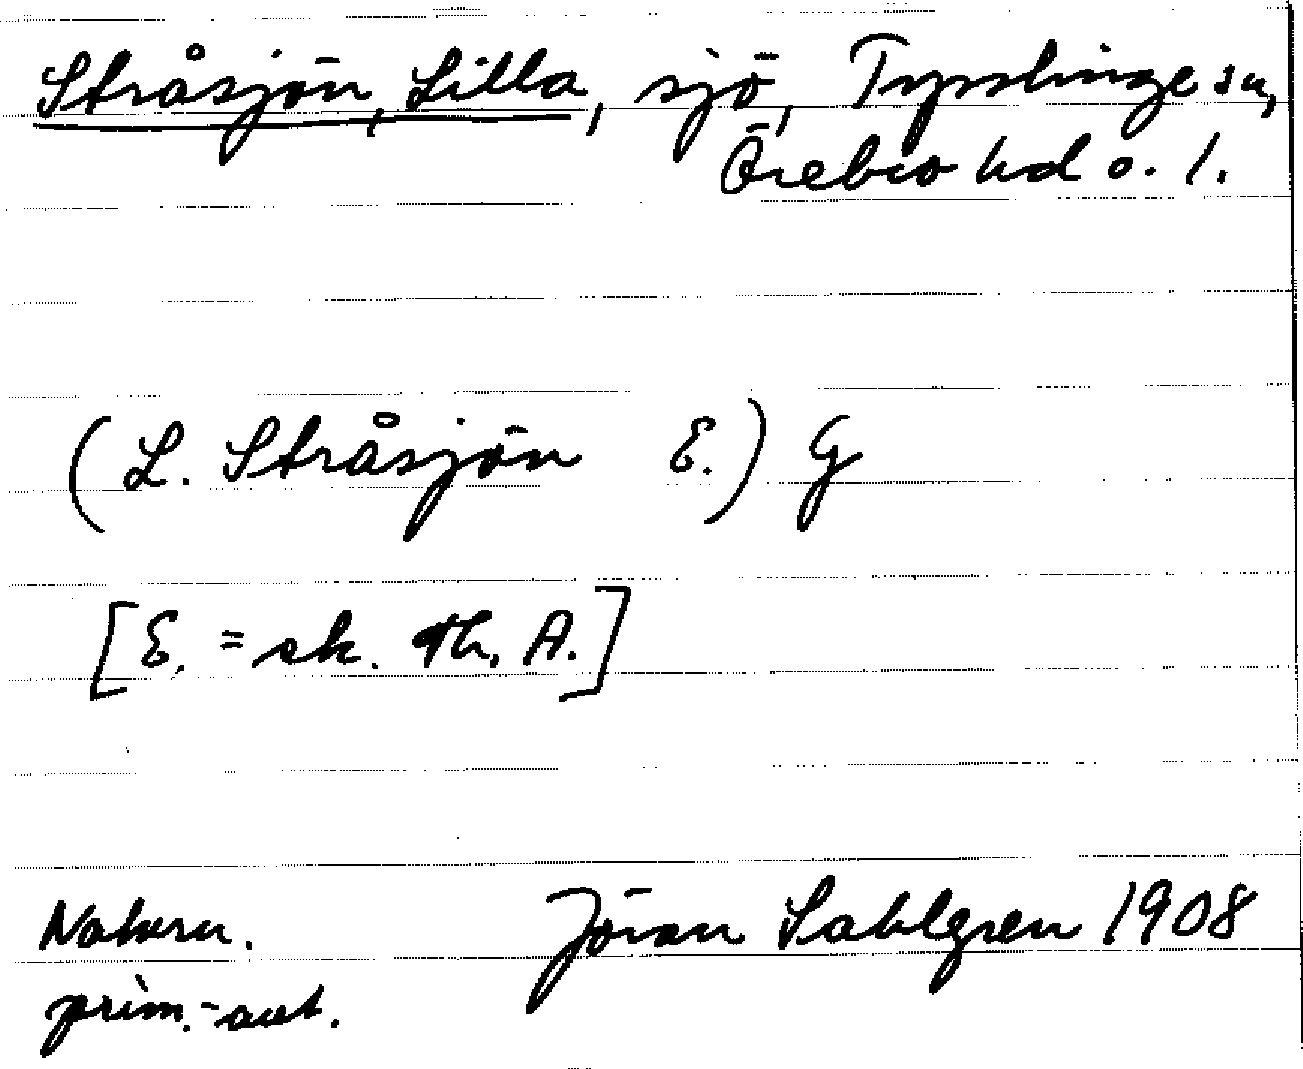 Stråsjön, Lilla, sjö, Tysslinge sn,
Örebro hd o. l.
(L. Stråsjön E.) G
[E. = sk. Th. A.]
Naturn. Jöran Sahlgren 1908
prim.-aut.